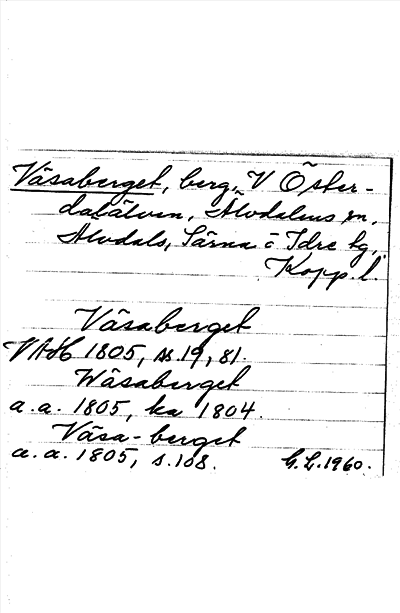 Väsaberget, berg, V Öster-
dalälven, Älvdalens sn,
Älvdals, Särna o Idre tg,
Kopp. l.
Väsaberget
VAH 1805, ss. 19, 81.
Wäsaberget
a.a. 1805, ka 1804.
Väsa-berget
a.a. 1805, s. 108. G.L. 1960.